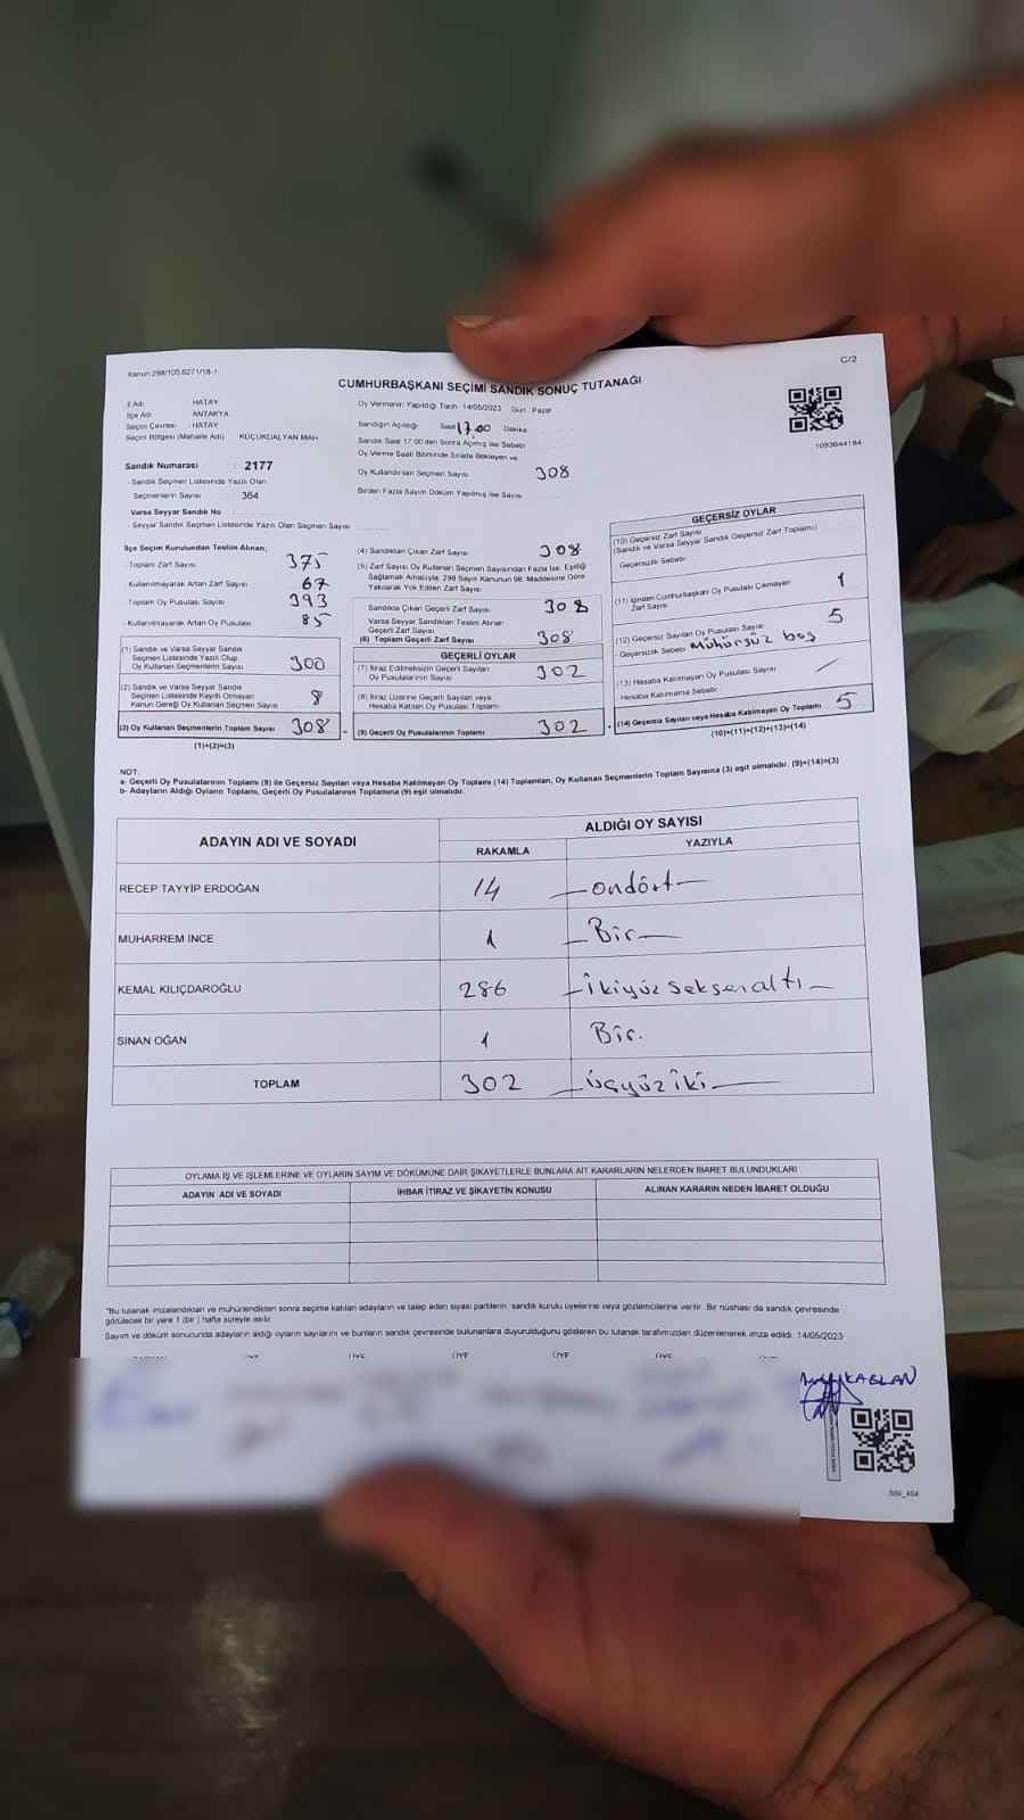 Kanun 298/105 6271/18-1
C/2
CUMHURBAŞKANI SEÇİMİ SANDIK SONUÇ TUTANAĞI
İl Adı : HATAY
İlçe Adı : ANTAKYA
Seçim Çevresi : HATAY
Seçim Bölgesi (Mahalle Adı) : KÜÇÜKDALYAN MAH
Sandık Numarası : 2177
- Sandık Seçmen Listesinde Yazılı Olan
Seçmenlerin Sayısı : 364
Varsa Seyyar Sandık No
- Seyyar Sandık Seçmen Listesinde Yazılı Olan Seçmen Sayısı
Oy Vermenin Yapıldığı Tarih : 14/05/2023 Gün : Pazar
Sandığın Açıldığı Saat 17.00 Dakika
Sandık Saat 17:00'den Sonra Açılmış İse Sebebi
Oy Verme Saati Bitiminde Sırada Bekleyen ve
Oy Kullandırılan Seçmen Sayısı 308
Birden Fazla Sayım Döküm Yapılmış İse Sayısı
1093644184
İlçe Seçim Kurulundan Teslim Alınan;
- Toplam Zarf Sayısı 375
- Kullanılmayarak Artan Zarf Sayısı 67
- Toplam Oy Pusulası Sayısı 393
- Kullanılmayarak Artan Oy Pusulası 85
(1) Sandık ve Varsa Seyyar Sandık
Seçmen Listesinde Yazılı Olup
Oy Kullanan Seçmenlerin Sayısı 300
(2) Sandık ve Varsa Seyyar Sandık
Seçmen Listesinde Kayıtlı Olmayan
Kanun Gereği Oy Kullanan Seçmen Sayısı 8
(3) Oy Kullanan Seçmenlerin Toplam Sayısı 308
(1)+(2)=(3)
(4) Sandıktan Çıkan Zarf Sayısı 308
(5) Zarf Sayısı Oy Kullanan Seçmen Sayısından Fazla İse, Eşitliği
Sağlamak Amacıyla, 298 Sayılı Kanunun 98. Maddesine Göre
Yakılarak Yok Edilen Zarf Sayısı
Sandıkta Çıkan Geçerli Zarf Sayısı 308
Varsa Seyyar Sandıktan Teslim Alınan
Geçerli Zarf Sayısı
(6) Toplam Geçerli Zarf Sayısı 308
GEÇERLİ OYLAR
(7) İtiraz Edilmeksizin Geçerli Sayılan
Oy Pusulalarının Sayısı 302
(8) İtiraz Üzerine Geçerli Sayılan veya
Hesaba Katılan Oy Pusulası Toplamı
(9) Geçerli Oy Pusulalarının Toplamı 302
GEÇERSİZ OYLAR
(10) Geçersiz Zarf Sayısı
(Sandık ve Varsa Seyyar Sandık Geçersiz Zarf Toplamı)
Geçersizlik Sebebi
(11) İçinden Cumhurbaşkanı Oy Pusulası Çıkmayan
Zarf Sayısı 1
(12) Geçersiz Sayılan Oy Pusulası Sayısı 5
Geçersizlik Sebebi Mühürsüz boş
(13) Hesaba Katılmayan Oy Pusulası Sayısı
Hesaba Katılmama Sebebi
(14) Geçersiz Sayılan veya Hesaba Katılmayan Oy Toplamı 5
(10)+(11)+(12)+(13)=(14)
NOT:
a- Geçerli Oy Pusulalarının Toplamı (9) ile Geçersiz Sayılan veya Hesaba Katılmayan Oy Toplamı (14) Toplamları, Oy Kullanan Seçmenlerin Toplam Sayısına (3) eşit olmalıdır. (9)+(14)=(3)
b- Adayların Aldığı Oyların Toplamı, Geçerli Oy Pusulalarının Toplamına (9) eşit olmalıdır.
ADAYIN ADI VE SOYADI ALDIĞI OY SAYISI
RAKAMLA YAZIYLA
RECEP TAYYİP ERDOĞAN 14 -ondört-
MUHARREM İNCE 1 -Bir-
KEMAL KILIÇDAROĞLU 286 -ikiyüz seksenaltı-
SİNAN OĞAN 1 Bir.
TOPLAM 302 -üçyüziki-
OYLAMA İŞ VE İŞLEMLERİNE VE OYLARIN SAYIM VE DÖKÜMÜNE DAİR ŞİKAYETLERLE BUNLARA AİT KARARLARIN NELERDEN İBARET BULUNDUKLARI
ADAYIN ADI VE SOYADI İHBAR İTİRAZ VE ŞİKAYETİN KONUSU ALINAN KARARIN NEDEN İBARET OLDUĞU
"Bu tutanak imzalandıktan ve mühürlendikten sonra seçime katılan adayların ve talep eden siyasi partilerin, sandık kurulu üyelerine veya gözlemcilerine verilir. Bir nüshası da sandık çevresinde
görülecek bir yere 1 (bir) hafta süreyle asılır.
Sayım ve döküm sonucunda adayların aldığı oyların sayılarını ve bunların sandık çevresinde bulunanlara duyurulduğunu gösteren bu tutanak tarafımızdan düzenlenerek imza edildi. 14/05/2023
ÜYE ÜYE ÜYE ÜYE ÜYE
KAPLAN